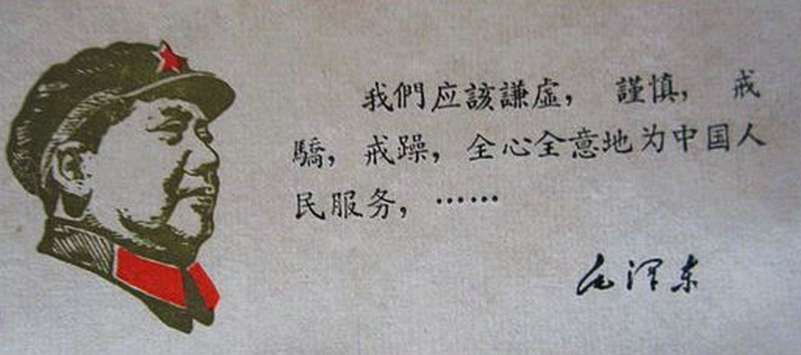 我們应該謙虛，謹慎，戒
驕，戒躁，全心全意地为中国人
民服务，……
毛泽东